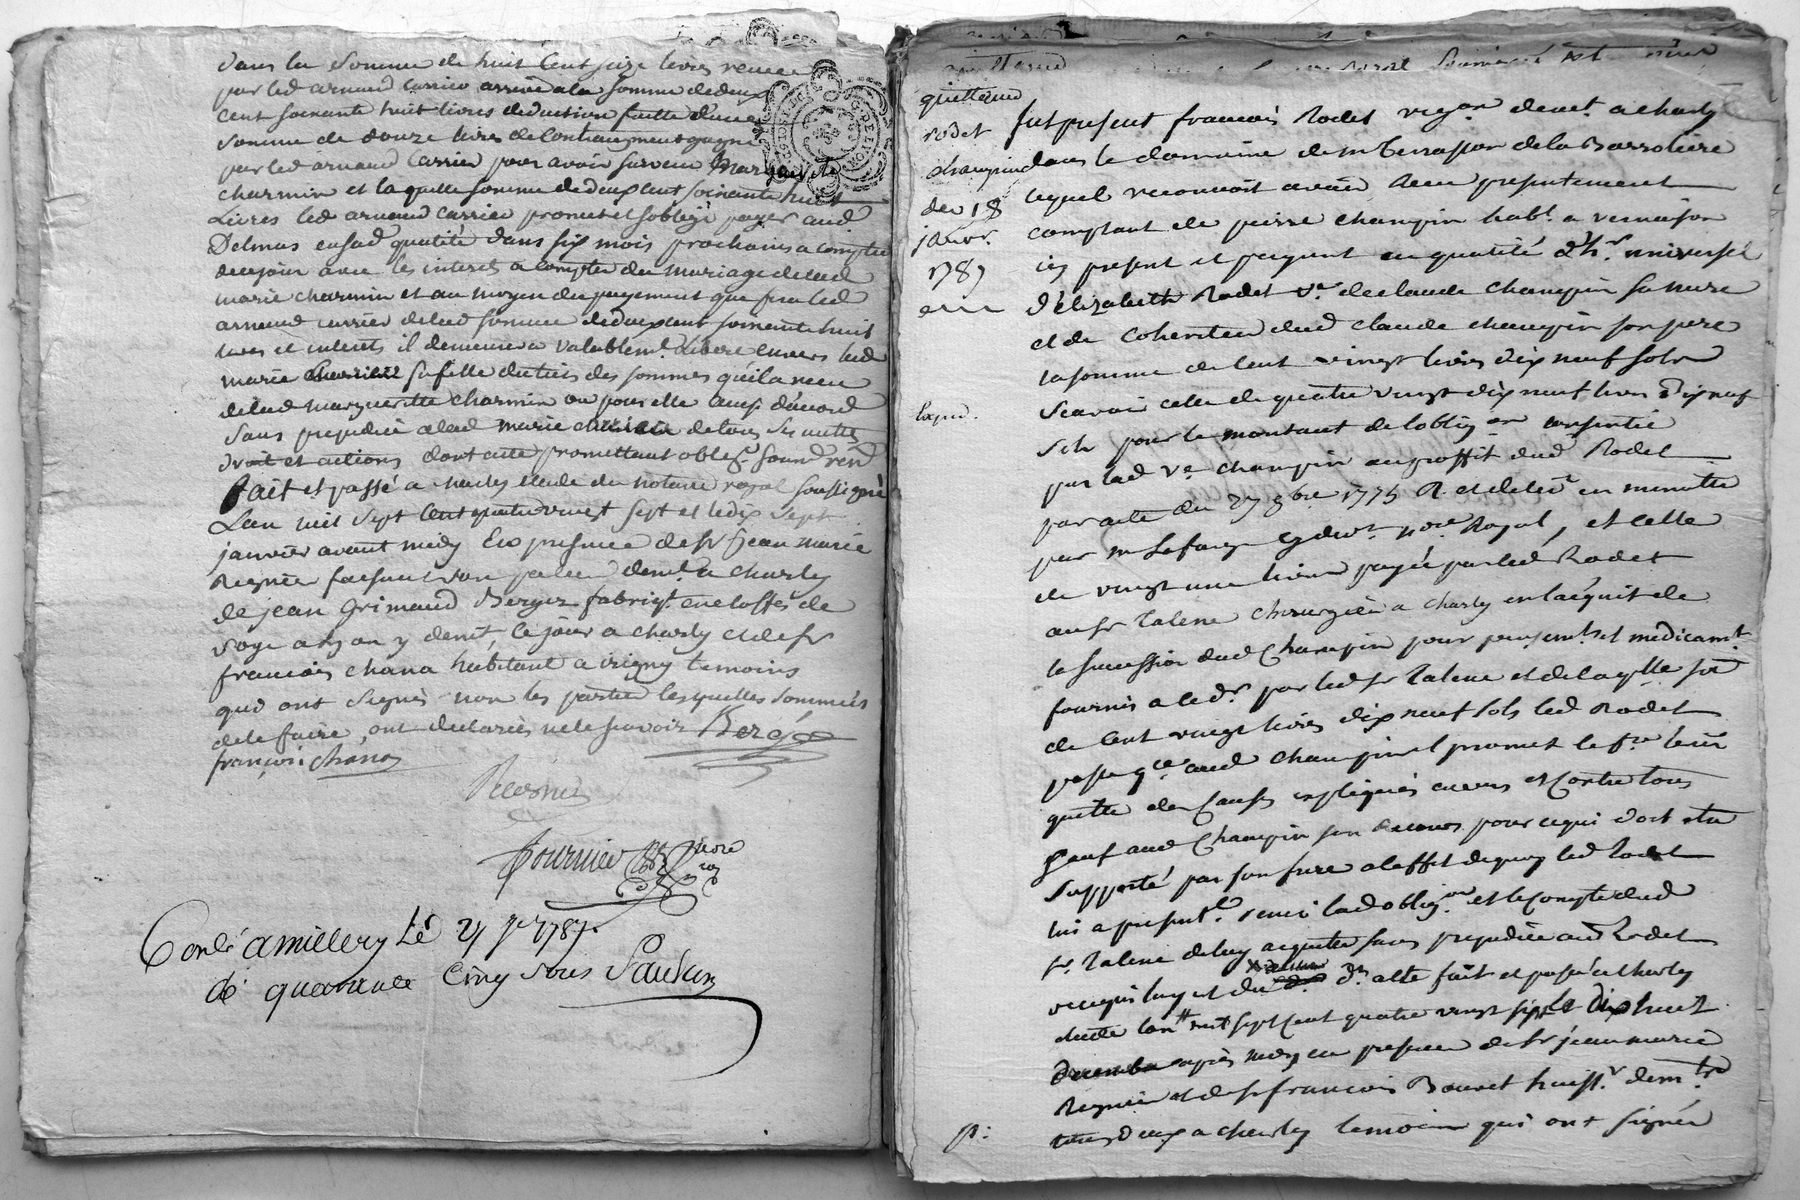 dans la somme de huit cent seize livres recue
par led arnaud carrier arrive a la somme de deux
cent soixante huit livres deduction faitte d'une
somme de douze livres de l'entangment gagné
par led arnaud Carrier pour avoir survecu Marguerite
charmin et laquelle somme de deux cent soixante huit
Livres led arnaud carrier promet et s'oblige payer aud
Delmas en sad qualité dans six mois prochains a compter
de ce jour avec les interets a compter du mariage de lad
marie charmin et au moyen du payement que fera led
arnaud carrier de lad somme de deux cent soixante huit
livres et interets il demeurera valablemt libéré envers lad
marie sa fille du tiers des sommes qu'il a recu
de lad margueritte charmin ou pour elle
sans prejudice a lad marie de tous ses autres
droit et actions dont acte promettant obleg soumd rend
fait et passé a charly etude du notaire royal soussigné
L'an mil sept cent quatre vingt sept et le dix sept
janvier avant midy En presence de sr jean marie
Regnier faisant demt a charly
de jean Grimaud Berger fabriqt en etoffes de
soye a Lyon y demt, ce jour a charly et de sr
francois chana habitant a irigny temoins
qui ont signés non les parties lesquelles sommées
de le faire, ont declarées ne le scavoir Berger
françois chana
Regnier
fournier nore
Conlé a millery Le 21 Jer 1787.
de quarante Cinq sous Paulin
quittance
rodet
champin
du 18
janvr.
1787
Expd.
fut present francois Rodet vigon demt. a charly
dans le domaine de mr terrasson de la Barroliere
lequel reconnoit avoir recu presentement
comptant de pierre champin habt. a vernaison
icy present et payant en qualité d'hr. universel
d'élizabeth Rodet ve. de claude champin sa mere
et de coheritier dud claude champin son pere
la somme de cent vingt livres dix neuf sols
scavoir celle de quatre vingt dix neuf livres dix neuf
sols pour le montant de l'oblig on consentie
par lad ve. champin au proffit dud Rodet
par acte du 27 8bre 1775 R. et en minutte
par me Lafarge nore Royal, et celle
de vingt une livres payée par led Rodet
au sr Talene chirurgien a charly en l'acquit de
la succession dud champin pour pensemts et medicamt.
fournis a led. par led sr Talene et de laqlle so
de cent vingt livres dix neuf sols led Rodet
passe qce aud champin et promet le fre tenir
quitte des causes expliquées envers et contre tous
sauf aud champin son recours pour ce qui doit etre
supporté par son frere a l'effet de quoy led Rodet
lui a presentt. remis lad oblig on et le compte dud
sr. Talene de luy acquitté sans prejudice aud Rodet
acte fait et passé a charly
etude l'an mil sept cent quatre vingt sept le dix huit
après midy en presence de sr jean marie
Regnier et de sr francois Bouvet huissr. demt.
tous deux a charly temoins qui ont signé
p: